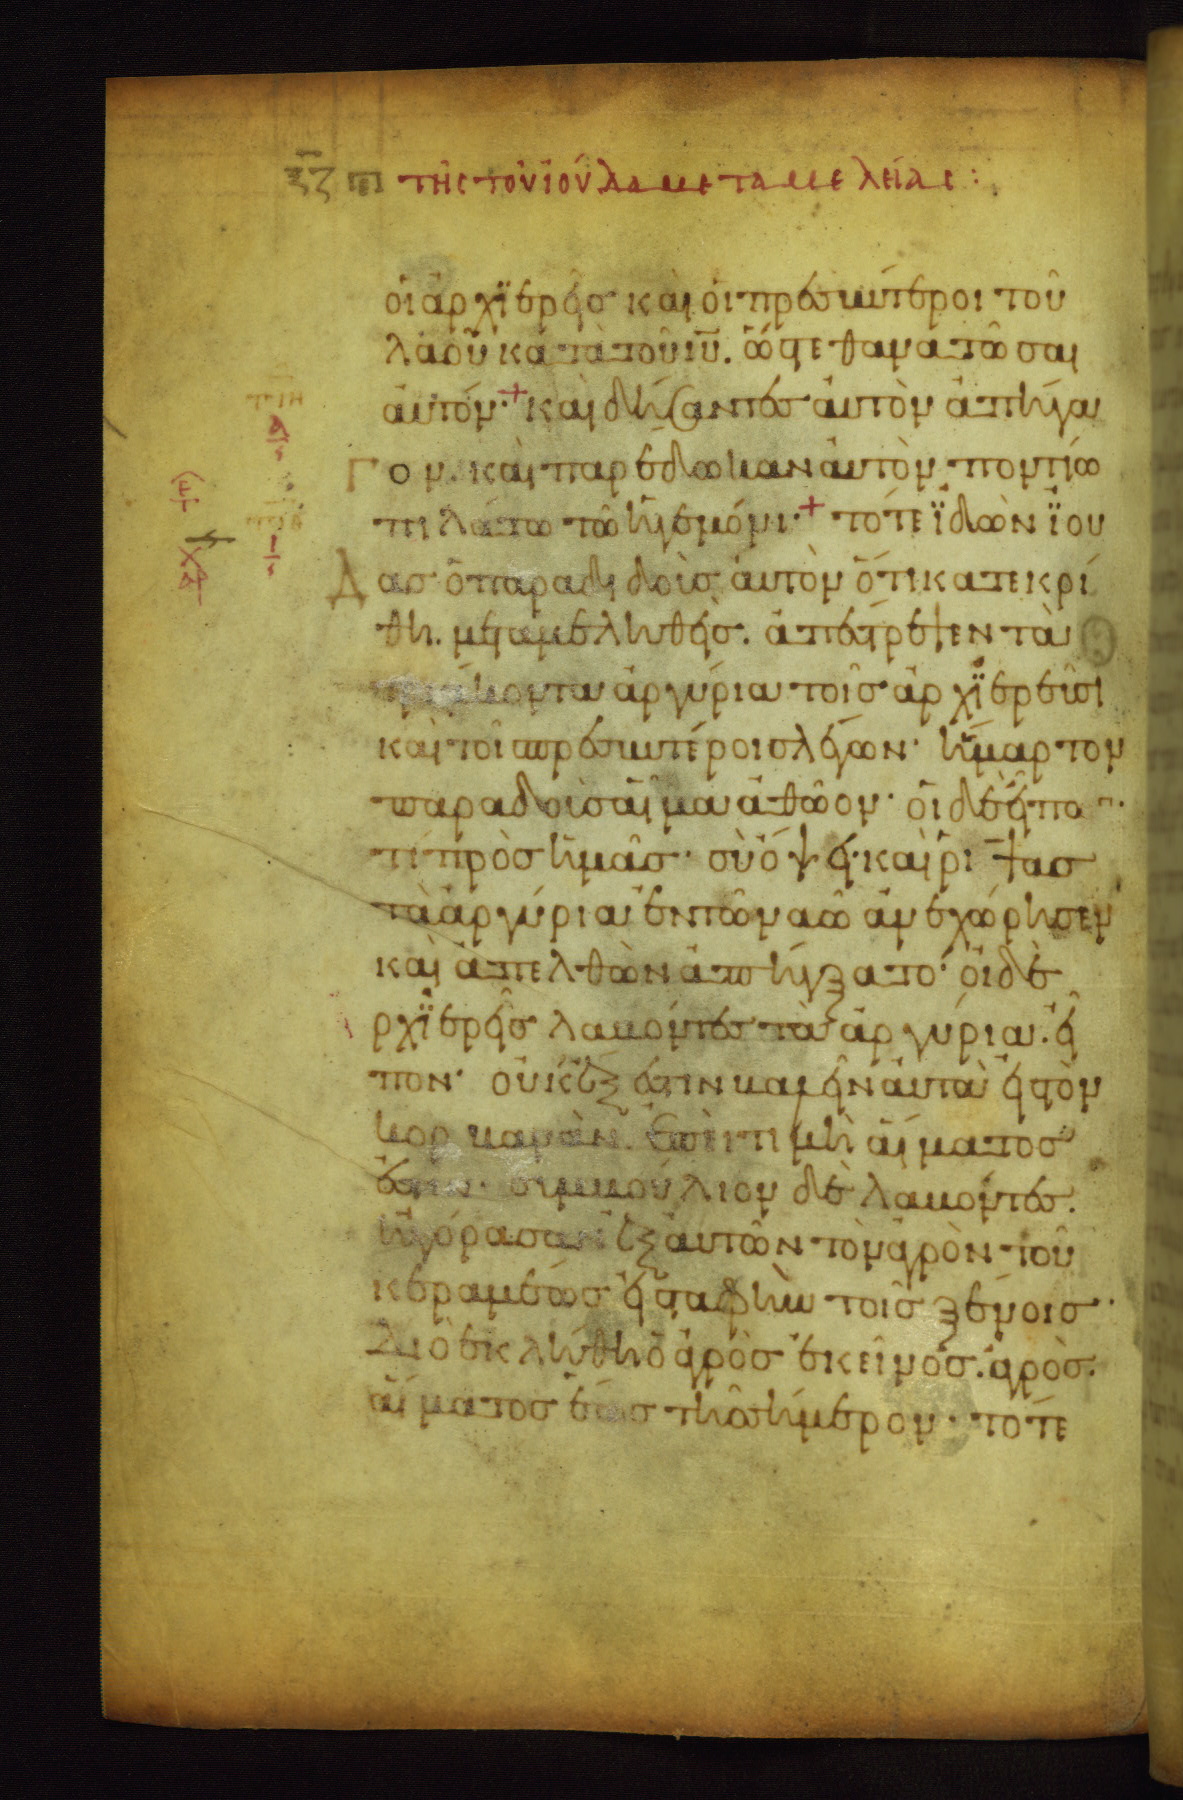 ξζ π τῆς τοῦ ἰούδα μεταμελείας:
οἱ ἀρχϊερεῖσ καὶ οἱ πρεσβύτεροι τοῦ
λαοῦ κατὰ τοῦ ιυ. ὥστε θανατῶσαι
αὐτόν· + καὶ δήσαντεσ αὐτὸν ἀπήγα
γον. καὶ παρέδωκαν αὐτὸν ποντίω
πιλάτω τῶ ἡγεμόνι· + τότε ϊδὼν ϊου
Δασ ὁ παραδιδοὺσ αὐτὸν ὅτι κατεκρί
θη. μεταμεληθεὶσ. ἀπέστρεψεν τὰ
τριάκοντα ἀργύρια τοῖσ ἀρχϊερεῦσι
καὶ τοῖ πρεσβυτέροισ λέγων· ἥμαρτον
παραδοὺσ αἷμα ἀθῶον· οἱ δὲ εἶπον·
τί πρὸσ ἡμᾶσ· σὺ ὄψει· καὶ ρίψασ
τὰ ἀργύρια ἐν τῶ ναῶ ἀνεχώρησεν
καὶ ἀπελθὼν ἀπήγξατο· οἱ δὲ
ἀρχϊερεῖσ λαβόντεσ τὰ ἀργύρια. εἶ
πον· οὐκ ἔξεστιν βαλεῖν αὐτὰ εἰσ τὸν
κορβανᾶν. ἐπεὶ τιμὴ αἵματοσ
ἐστιν· συμβούλιον δὲ λαβόντεσ.
ἠγόρασαν ἐξ αὐτῶν τὸν ἀγρὸν τοῦ
κεραμέωσ εἰσ ταφὴν τοῖσ ξένοισ·
Διὸ ἐκλήθη ὁ ἀγρὸσ ἐκεῖνοσ. ἀγρὸσ.
αἵματοσ ἕωσ τῆσ σήμερον· τότε